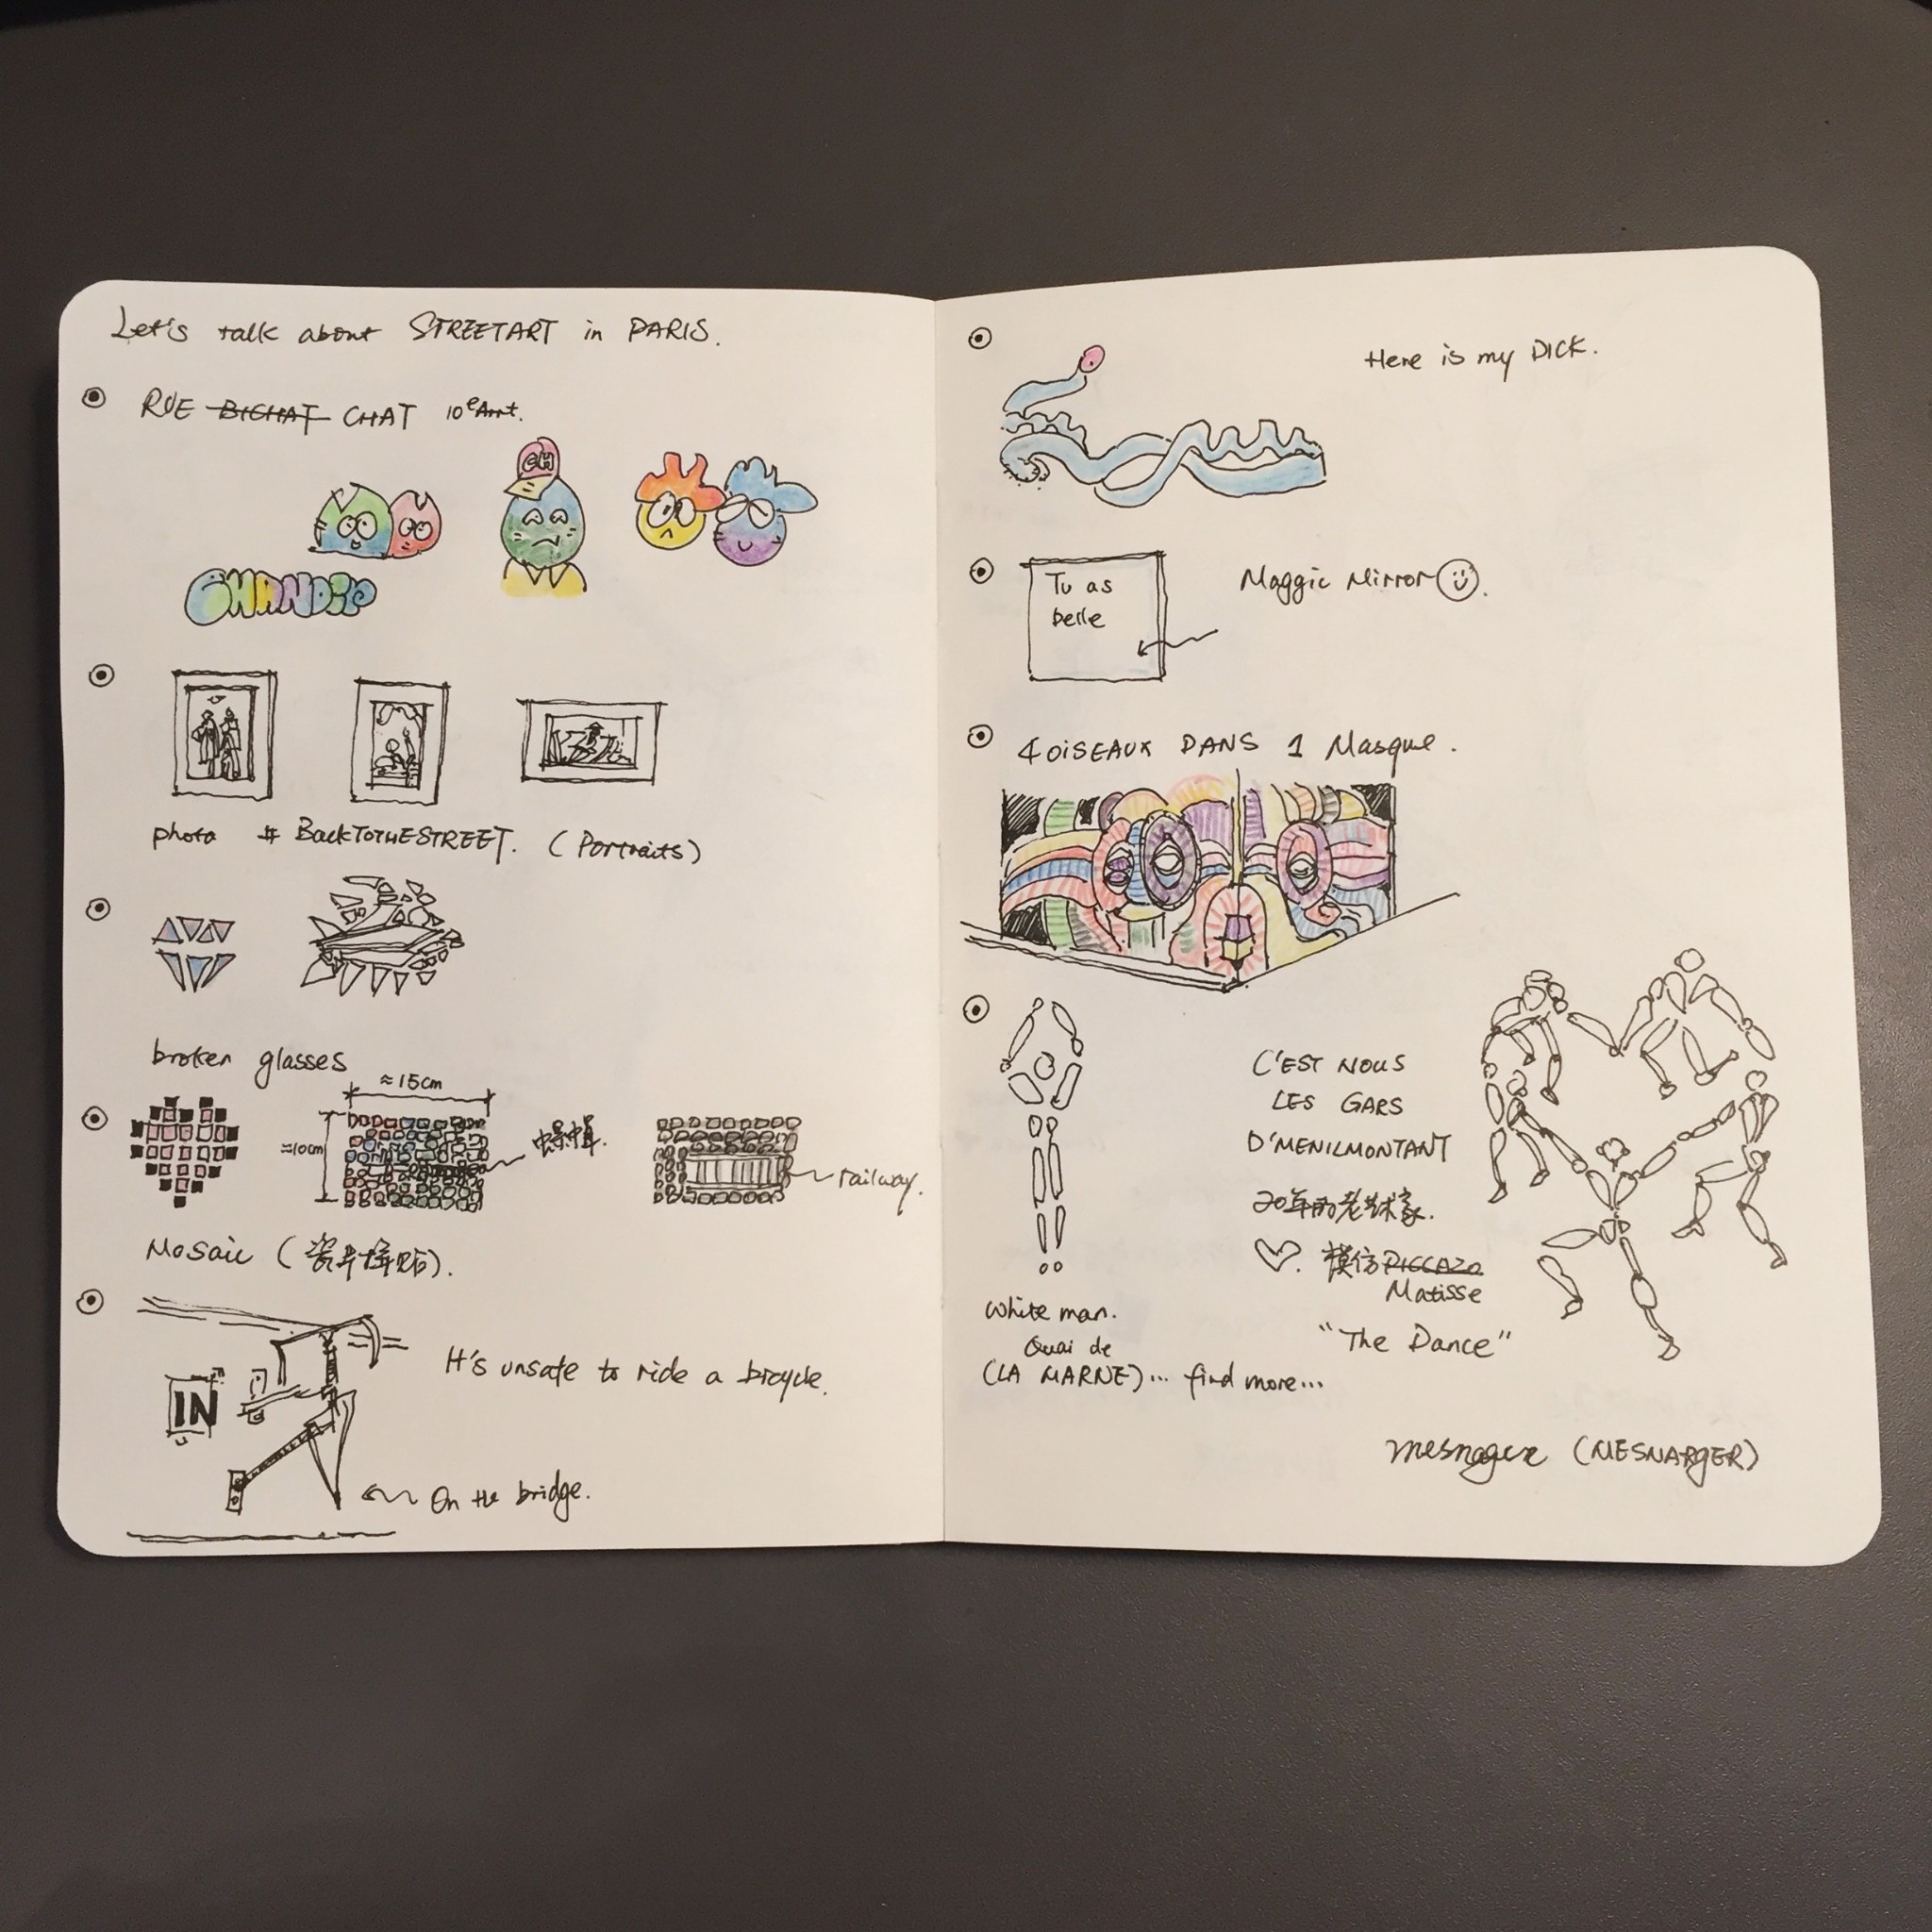 Let's talk about STREETART in PARIS.
RUE BICHAT CHAT 10e Arrt.
CH
CHANDIP
photo # BackTOTHESTREET. (Portraits)
broken glasses
≈15cm
≈10cm
railway.
Mosaic (瓷片拼贴).
IN
It's unsafe to ride a bicycle.
On the bridge.
Here is my DICK.
Tu as
belle
Maggic Mirror
4 OISEAUX DANS 1 Masque.
C'EST NOUS
LES GARS
D'MENILMONTANT
20年的老艺术家.
模仿 PICCAZO
Matisse
"The Dance"
White man.
Quai de
(LA MARNE)... find more...
mesnager (MESNARGER)